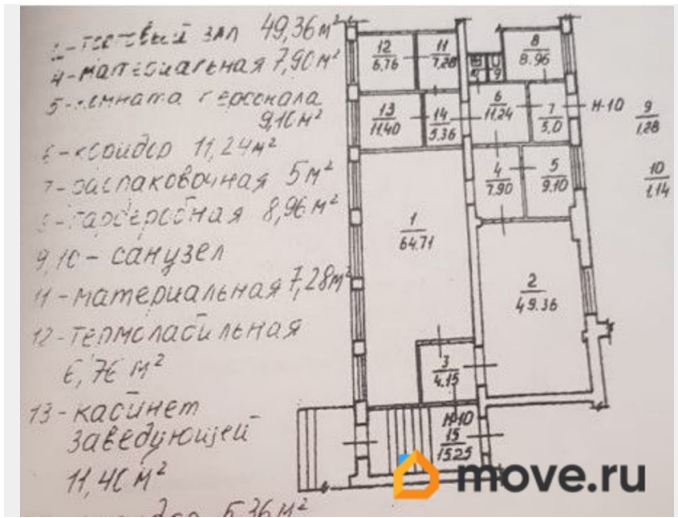 2-торговый зал 49,36м²
4-материальная 7,90м²
5-комната персонала
9,10м²
6-коридор 11,24м²
7-распаковочная 5м²
8-гардеробная 8,96м²
9,10-санузел
11-материальная 7,28м²
12-термолабильная
6,76 м²
13-кабинет
заведующей
11,40м²
5,36м²
12
6.76
11
7.28
8
8.96
13
11.40
14
5.36
6
11.24
7
5.0
Н-10
9
1.28
10
1.14
4
7.90
5
9.10
1
64.71
2
49.36
3
4.15
Н-10
15
15.25
move.ru